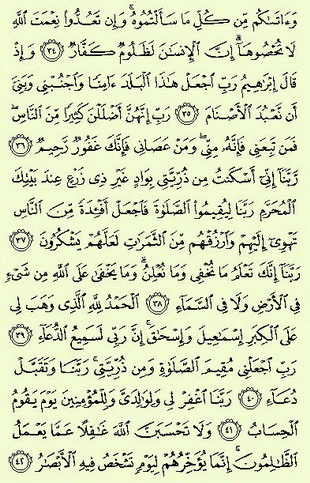 وَءَاتَىٰكُم مِّن كُلِّ مَا سَأَلْتُمُوهُ ۚ وَإِن تَعُدُّوا۟ نِعْمَتَ ٱللَّهِ
لَا تُحْصُوهَآ ۗ إِنَّ ٱلْإِنسَـٰنَ لَظَلُومٌ كَفَّارٌ ٣٤ وَإِذْ
قَالَ إِبْرَٰهِيمُ رَبِّ ٱجْعَلْ هَـٰذَا ٱلْبَلَدَ ءَامِنًا وَٱجْنُبْنِى وَبَنِىَّ
أَن نَّعْبُدَ ٱلْأَصْنَامَ ٣٥ رَبِّ إِنَّهُنَّ أَضْلَلْنَ كَثِيرًا مِّنَ ٱلنَّاسِ ۖ
فَمَن تَبِعَنِى فَإِنَّهُۥ مِنِّى ۖ وَمَنْ عَصَانِى فَإِنَّكَ غَفُورٌ رَّحِيمٌ ٣٦
رَّبَّنَآ إِنِّىٓ أَسْكَنتُ مِن ذُرِّيَّتِى بِوَادٍ غَيْرِ ذِى زَرْعٍ عِندَ بَيْتِكَ
ٱلْمُحَرَّمِ رَبَّنَا لِيُقِيمُوا۟ ٱلصَّلَوٰةَ فَٱجْعَلْ أَفْـِٔدَةً مِّنَ ٱلنَّاسِ
تَهْوِىٓ إِلَيْهِمْ وَٱرْزُقْهُم مِّنَ ٱلثَّمَرَٰتِ لَعَلَّهُمْ يَشْكُرُونَ ٣٧
رَبَّنَآ إِنَّكَ تَعْلَمُ مَا نُخْفِى وَمَا نُعْلِنُ ۗ وَمَا يَخْفَىٰ عَلَى ٱللَّهِ مِن شَىْءٍ
فِى ٱلْأَرْضِ وَلَا فِى ٱلسَّمَآءِ ٣٨ ٱلْحَمْدُ لِلَّهِ ٱلَّذِى وَهَبَ لِى
عَلَى ٱلْكِبَرِ إِسْمَـٰعِيلَ وَإِسْحَـٰقَ ۚ إِنَّ رَبِّى لَسَمِيعُ ٱلدُّعَآءِ ٣٩
رَبِّ ٱجْعَلْنِى مُقِيمَ ٱلصَّلَوٰةِ وَمِن ذُرِّيَّتِى ۚ رَبَّنَا وَتَقَبَّلْ
دُعَآءِ ٤٠ رَبَّنَا ٱغْفِرْ لِى وَلِوَٰلِدَىَّ وَلِلْمُؤْمِنِينَ يَوْمَ يَقُومُ
ٱلْحِسَابُ ٤١ وَلَا تَحْسَبَنَّ ٱللَّهَ غَـٰفِلًا عَمَّا يَعْمَلُ
ٱلظَّـٰلِمُونَ ۚ إِنَّمَا يُؤَخِّرُهُمْ لِيَوْمٍ تَشْخَصُ فِيهِ ٱلْأَبْصَـٰرُ ٤٢